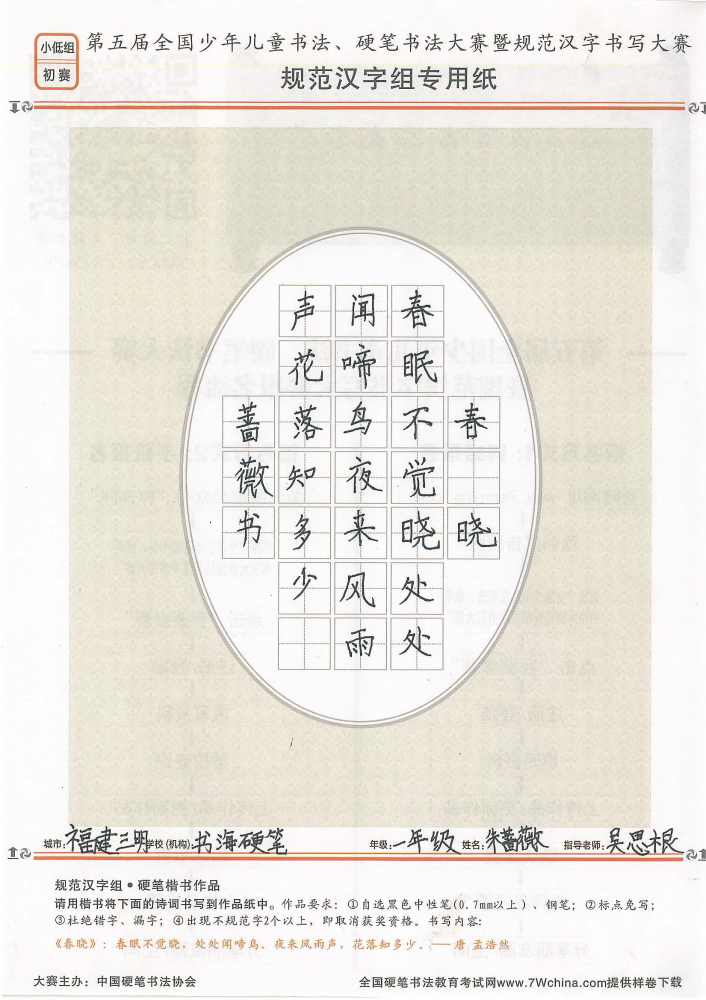 小低组
初赛
第五届全国少年儿童书法、硬笔书法大赛暨规范汉字书写大赛
规范汉字组专用纸
春晓
春眠不觉晓处处
闻啼鸟夜来风雨
声花落知多少
蔷薇书
城市:福建三明 学校(机构):书海硬笔 年级:一年级 姓名:朱蔷薇 指导老师:吴思根
规范汉字组•硬笔楷书作品
请用楷书将下面的诗词书写到作品纸中。作品要求:①自选黑色中性笔(0.7mm以上)、钢笔;②标点免写;
③杜绝错字、漏字;④出现不规范字2个以上,即取消获奖资格。书写内容:
《春晓》:春眠不觉晓,处处闻啼鸟,夜来风雨声,花落知多少。——唐 孟浩然
大赛主办:中国硬笔书法协会 全国硬笔书法教育考试网www.7Wchina.com提供样卷下载